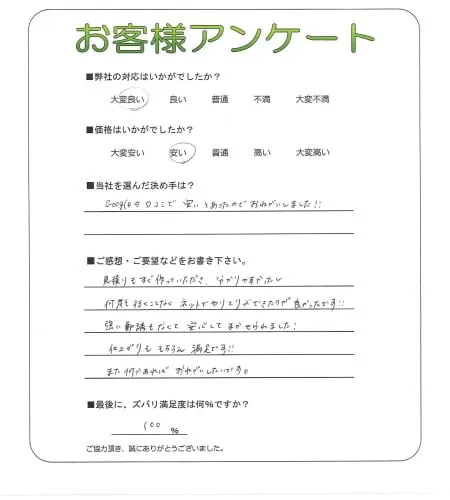 お客様アンケート
■弊社の対応はいかがでしたか？
大変良い 良い 普通 不満 大変不満
■価格はいかがでしたか？
大変安い 安い 普通 高い 大変高い
■当社を選んだ決め手は？
Googleの口コミで 安いとあったので おねがいしました!!
■ご感想・ご要望などをお書き下さい。
見積りもすぐ作っていただき、分かりやすかったし
何度も行くことなく ネットでやりとりができたのが良かったです!!
強い勧誘もなくて 安心して まかせられました!
仕上がりも もちろん 満足です!!
また何かあれば おねがいしたいです。
■最後に、ズバリ満足度は何％ですか？
100 ％
ご協力頂き、誠にありがとうございました。